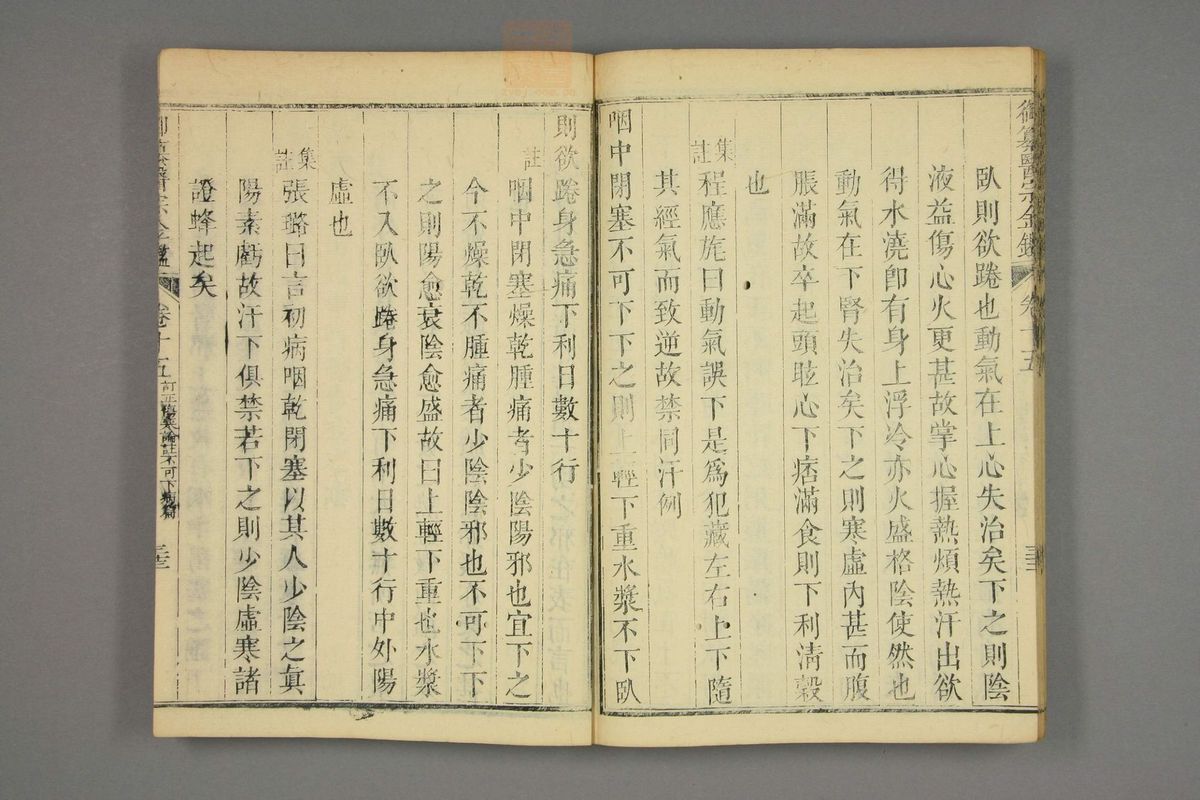 御纂醫宗金鑑 卷十五
臥則欲踡也動氣在上心失治矣下之則陰
液益傷心火更甚故掌心握熱煩熱汗出欲
得水澆卽有身上浮冷亦火盛格陰使然也
動氣在下腎失治矣下之則寒虛內甚而腹
脹滿故卒起頭眩心下痞滿食則下利淸穀
也
集註 程應旄曰動氣誤下是爲犯藏左右上下隨
其經氣而致逆故禁同汗例
咽中閉塞不可下下之則上輕下重水漿不下臥
則欲踡身急痛下利日數十行
註 咽中閉塞燥乾腫痛者少陰陽邪也宜下之
今不燥乾不腫痛者少陰陰邪也不可下下
之則陽愈衰陰愈盛故曰上輕下重也水漿
不入臥欲踡身急痛下利日數十行中外陽
虛也
集註 張璐曰言初病咽乾閉塞以其人少陰之眞
陽素虧故汗下俱禁若下之則少陰虛寒諸
證蜂起矣
御纂醫宗金鑑 卷十五 訂正傷寒論註不可下病篇